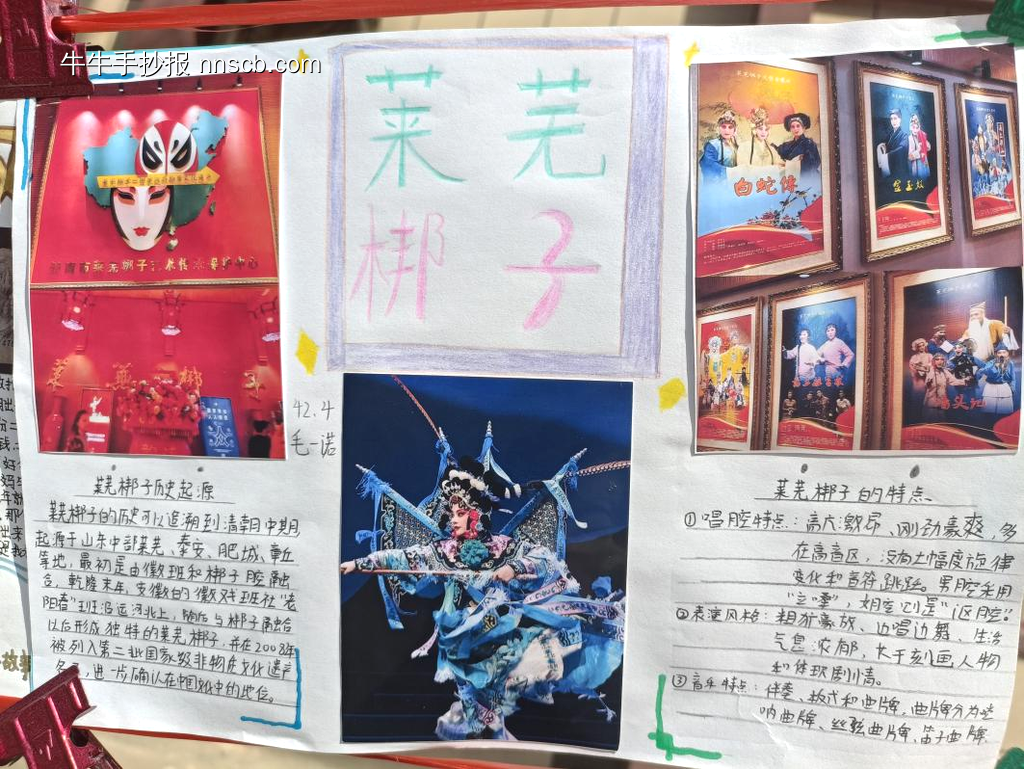 牛牛手抄报 nnscb.com
莱芜
梆子
白蛇传
42.4
毛一诺
莱芜梆子历史起源
莱芜梆子的历史可以追溯到清朝中期
起源于山东中部莱芜、泰安、肥城、章丘
等地，最初是由徽班和梆子腔融
合，乾隆末年，安徽的徽戏班社"老
阳春"班沿运河北上，随后与梆子融合
以后形成独特的莱芜梆子，并在2008年
被列入第二批国家级非物质文化遗产
名录，进一步确认在中国文化中的地位。
莱芜梆子的特点
①唱腔特点：高亢激昂、刚劲豪爽，多
在高音区，没有大幅度旋律
变化和音符跳跃。男腔采用
②表演风格：粗犷豪放、边唱边舞、生活
气息浓郁，长于刻画人物
和体现剧情。
③音乐特点：伴奏、板式和曲牌，曲牌分为唢
呐曲牌、丝弦曲牌、笛子曲牌、